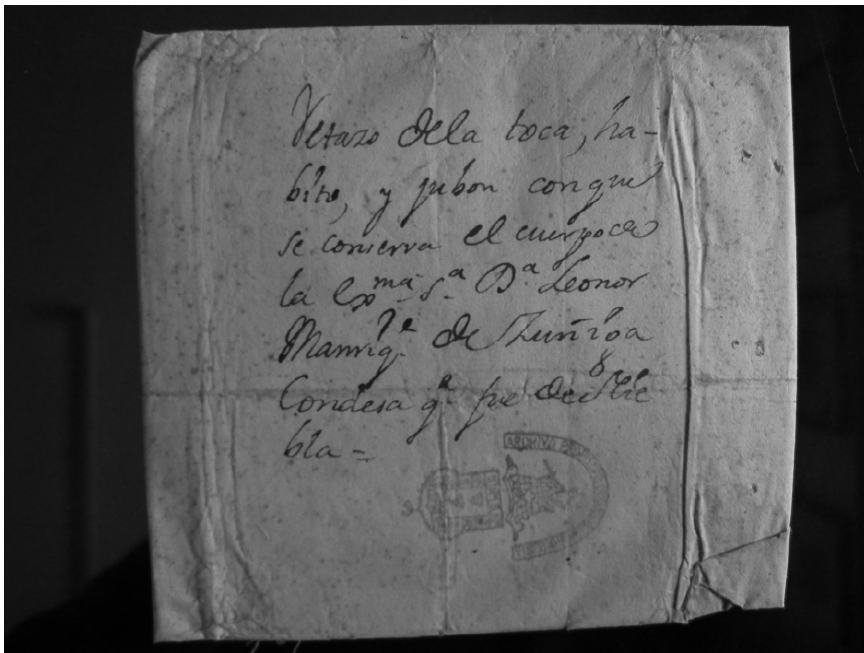 Retazo dela toca, ha-
bito, y jubon conque
se conserva el cuerpo de
la Exma Sª Dª Leonor
Manrqe de Zuñiga
Condesa qe fue de Nie
bla =
ARCHIVO